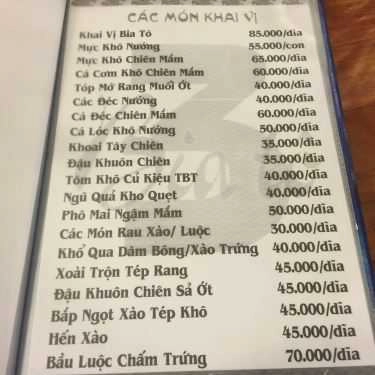 CÁC MÓN KHAI VỊ
Khai Vị Bia Tô 85.000/dĩa
Mực Khô Nướng 55.000/con
Mực Khô Chiên Mắm 65.000/dĩa
Cá Cơm Khô Chiên Mắm 60.000/dĩa
Tóp Mỡ Rang Muối Ớt 40.000/dĩa
Các Đéc Nướng 40.000/dĩa
Cá Đéc Chiên Mắm 60.000/dĩa
Cá Lóc Khô Nướng 50.000/dĩa
Khoai Tây Chiên 35.000/dĩa
Đậu Khuôn Chiên 35.000/dĩa
Tôm Khô Củ Kiệu TBT 40.000/dĩa
Ngũ Quả Kho Quẹt 40.000/dĩa
Phô Mai Ngậm Mắm 50.000/dĩa
Các Món Rau Xào/ Luộc 30.000/dĩa
Khổ Qua Dầm Bông/Xào Trứng 40.000/dĩa
Xoài Trộn Tép Rang 45.000/dĩa
Đậu Khuôn Chiên Sả Ớt 45.000/dĩa
Bắp Ngọt Xào Tép Khô 45.000/dĩa
Hến Xào 45.000/dĩa
Bầu Luộc Chấm Trứng 70.000/dĩa